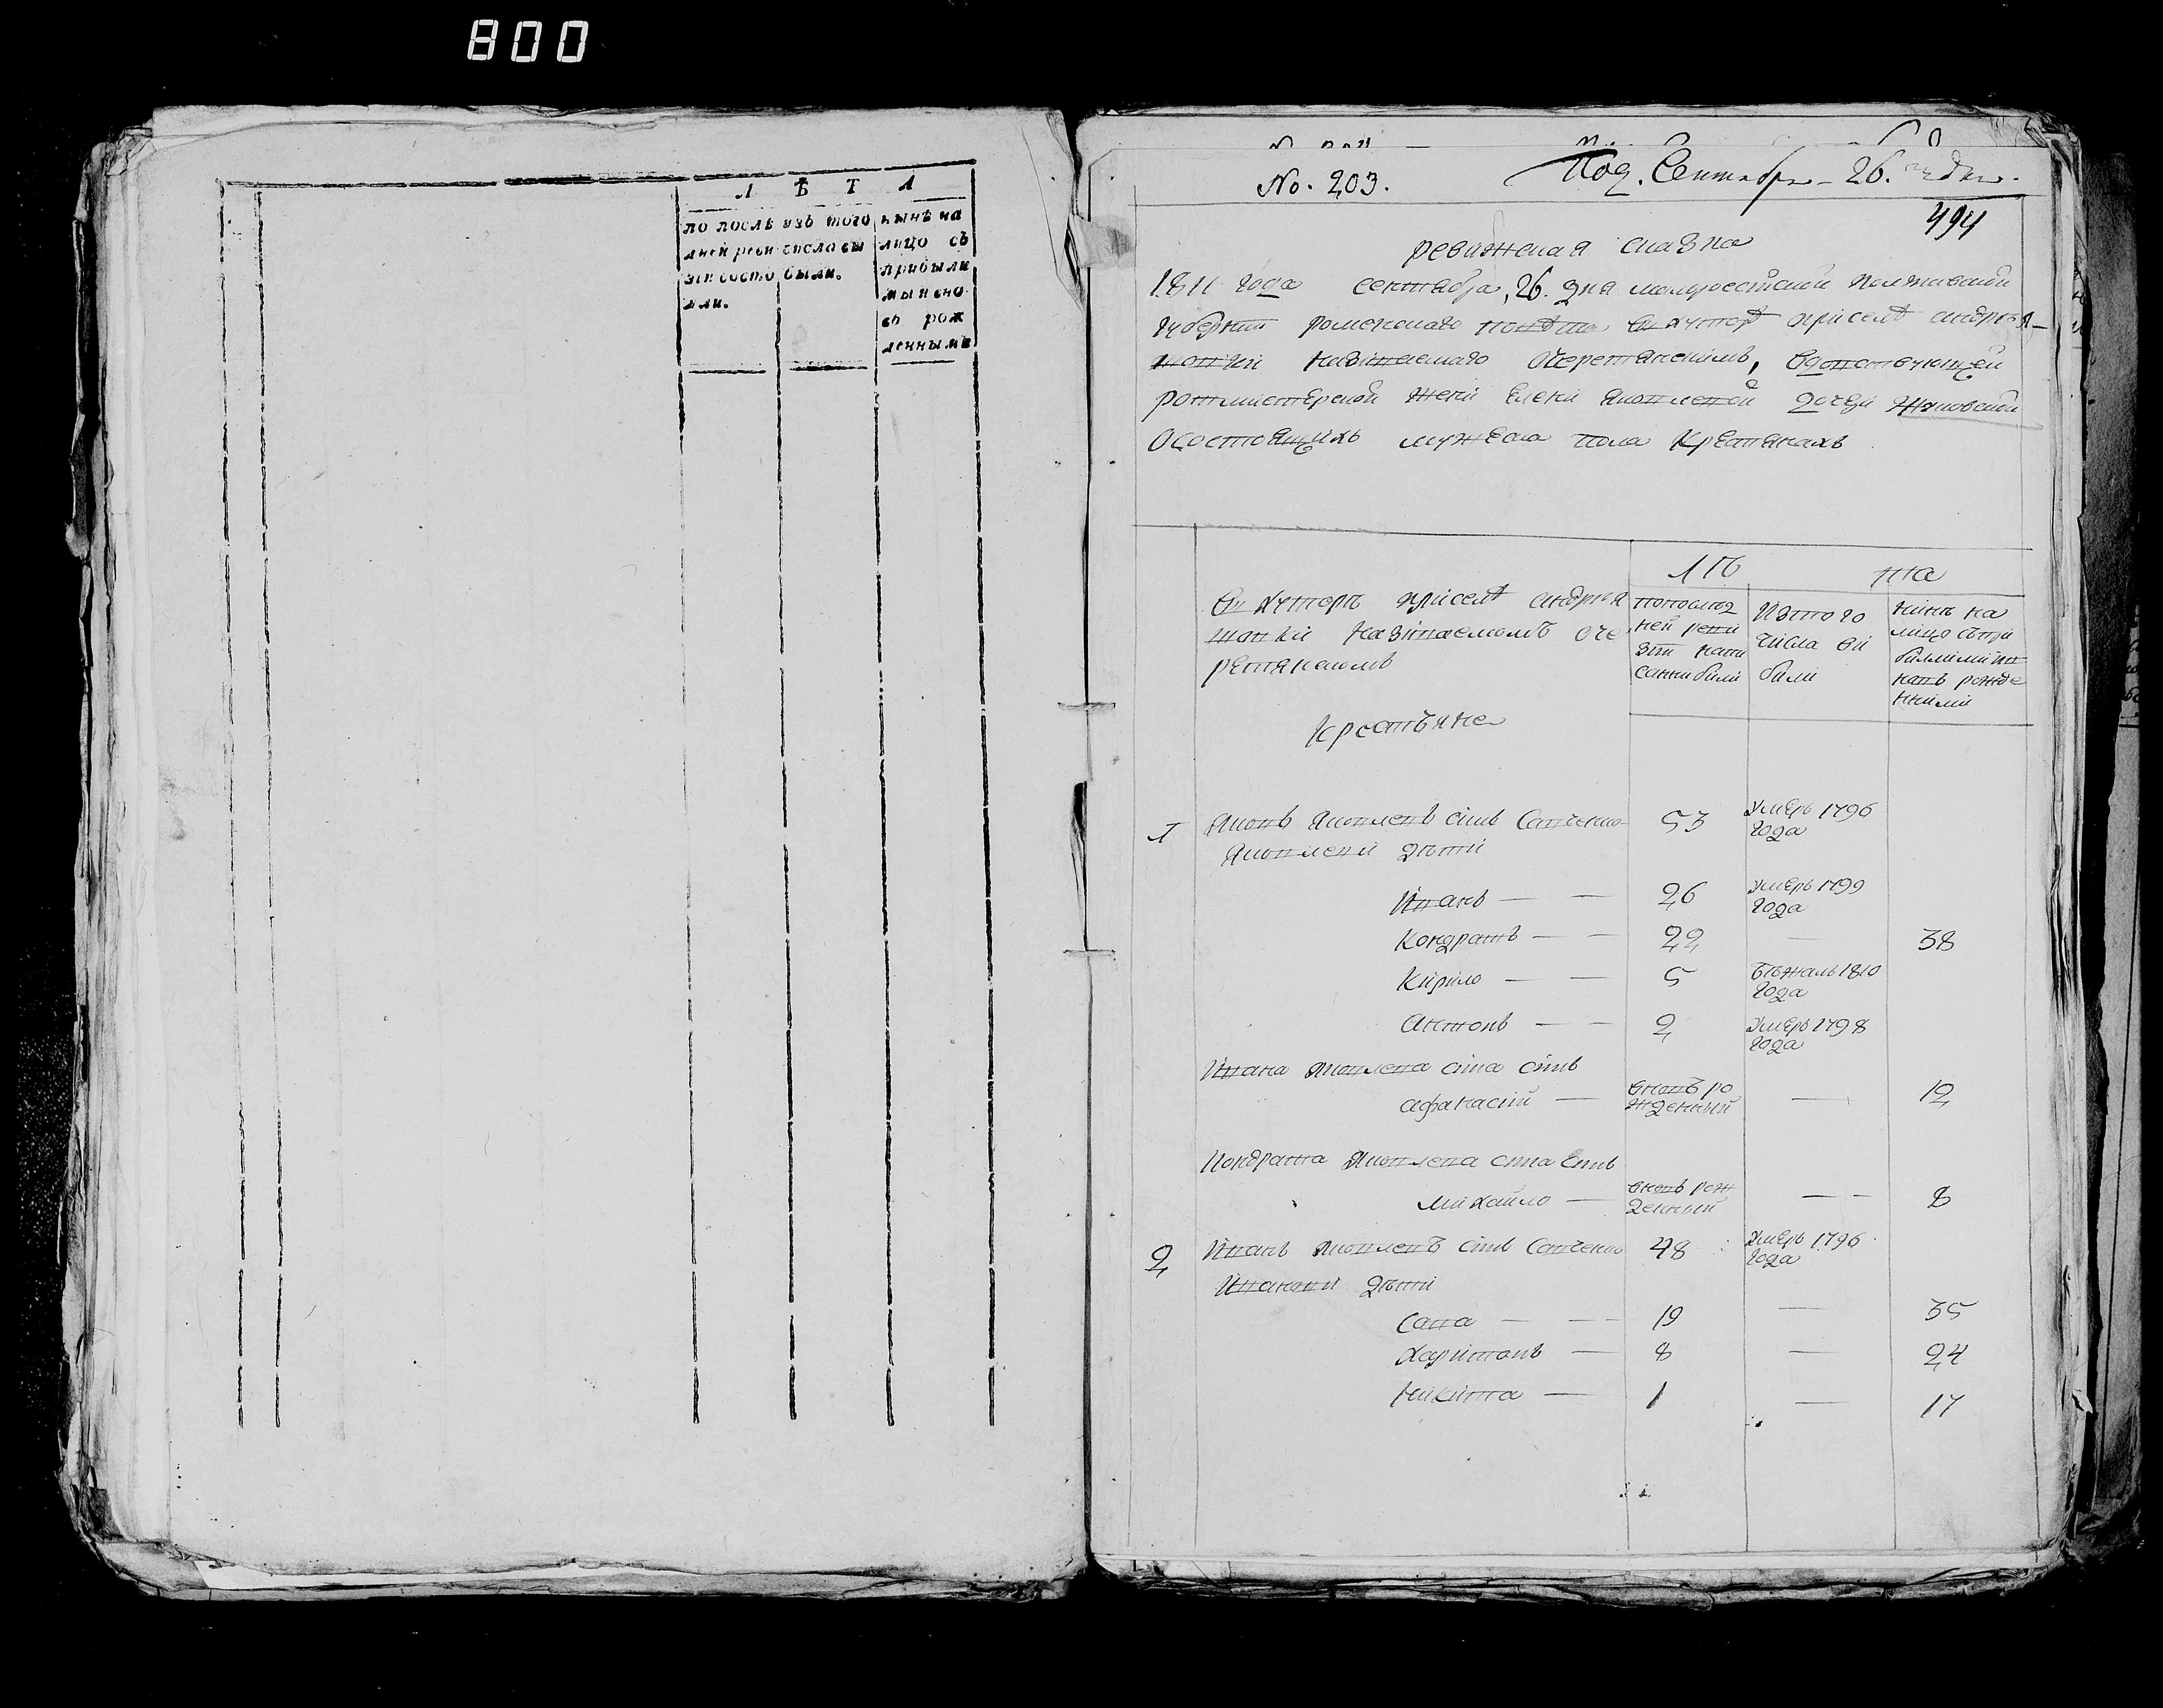 800
Л Ѣ Т А
по послѣ
дней реви
зіи состо
яли.
изъ того
числа вы
были.
нынѣ на
лицо съ
прибыли
ми и вно
въ рож
денными
No. 203.
Под. Сентября 26. дня.
494
ревижская сказка
1811 года сентября, 26. дня малоросійской полтавской
губерніи роменскаго повѣта въ хуторѣ при селѣ андрѣя
шовки називаемаго Очеретянскимъ, вдовствующей
ротмистерской жени Елени Яковлевой дочери
О состоящихъ мужеска пола Крестянахъ
Лѣ та
Въ хуторѣ при селѣ андрѣя
шовки називаемомъ оче
ретянскомъ
попослѣд
ней реви
зіи напи
санни били
Изтого
числа ви
били
нинѣ на
лицо съпри
билими и в
новъ рожде
нними
Крестьяне
1 Яковъ Яковлевъ синъ Савченко 53 умеръ 1796
года
Яковлеви дѣти
Иванъ — — 26 умеръ 1799
года
Кондратъ — — 22 — 38
Кирило — — 5 Бѣжалъ 1810
года
Антонъ — — 2 умеръ 1798
года
Ивана Яковлева сина синъ
афанасій — вновь ро
жденный — 12
Кондрата Яковлева сина синъ
михайло — вновь рож
денный — - 8
2 Иванъ Яковлевъ синъ Савченко 48 умеръ 1796
года
Ивановы дѣти
Сава — — 19 — 35
Харитонъ — 8 — 24
Никита — 1 — 17